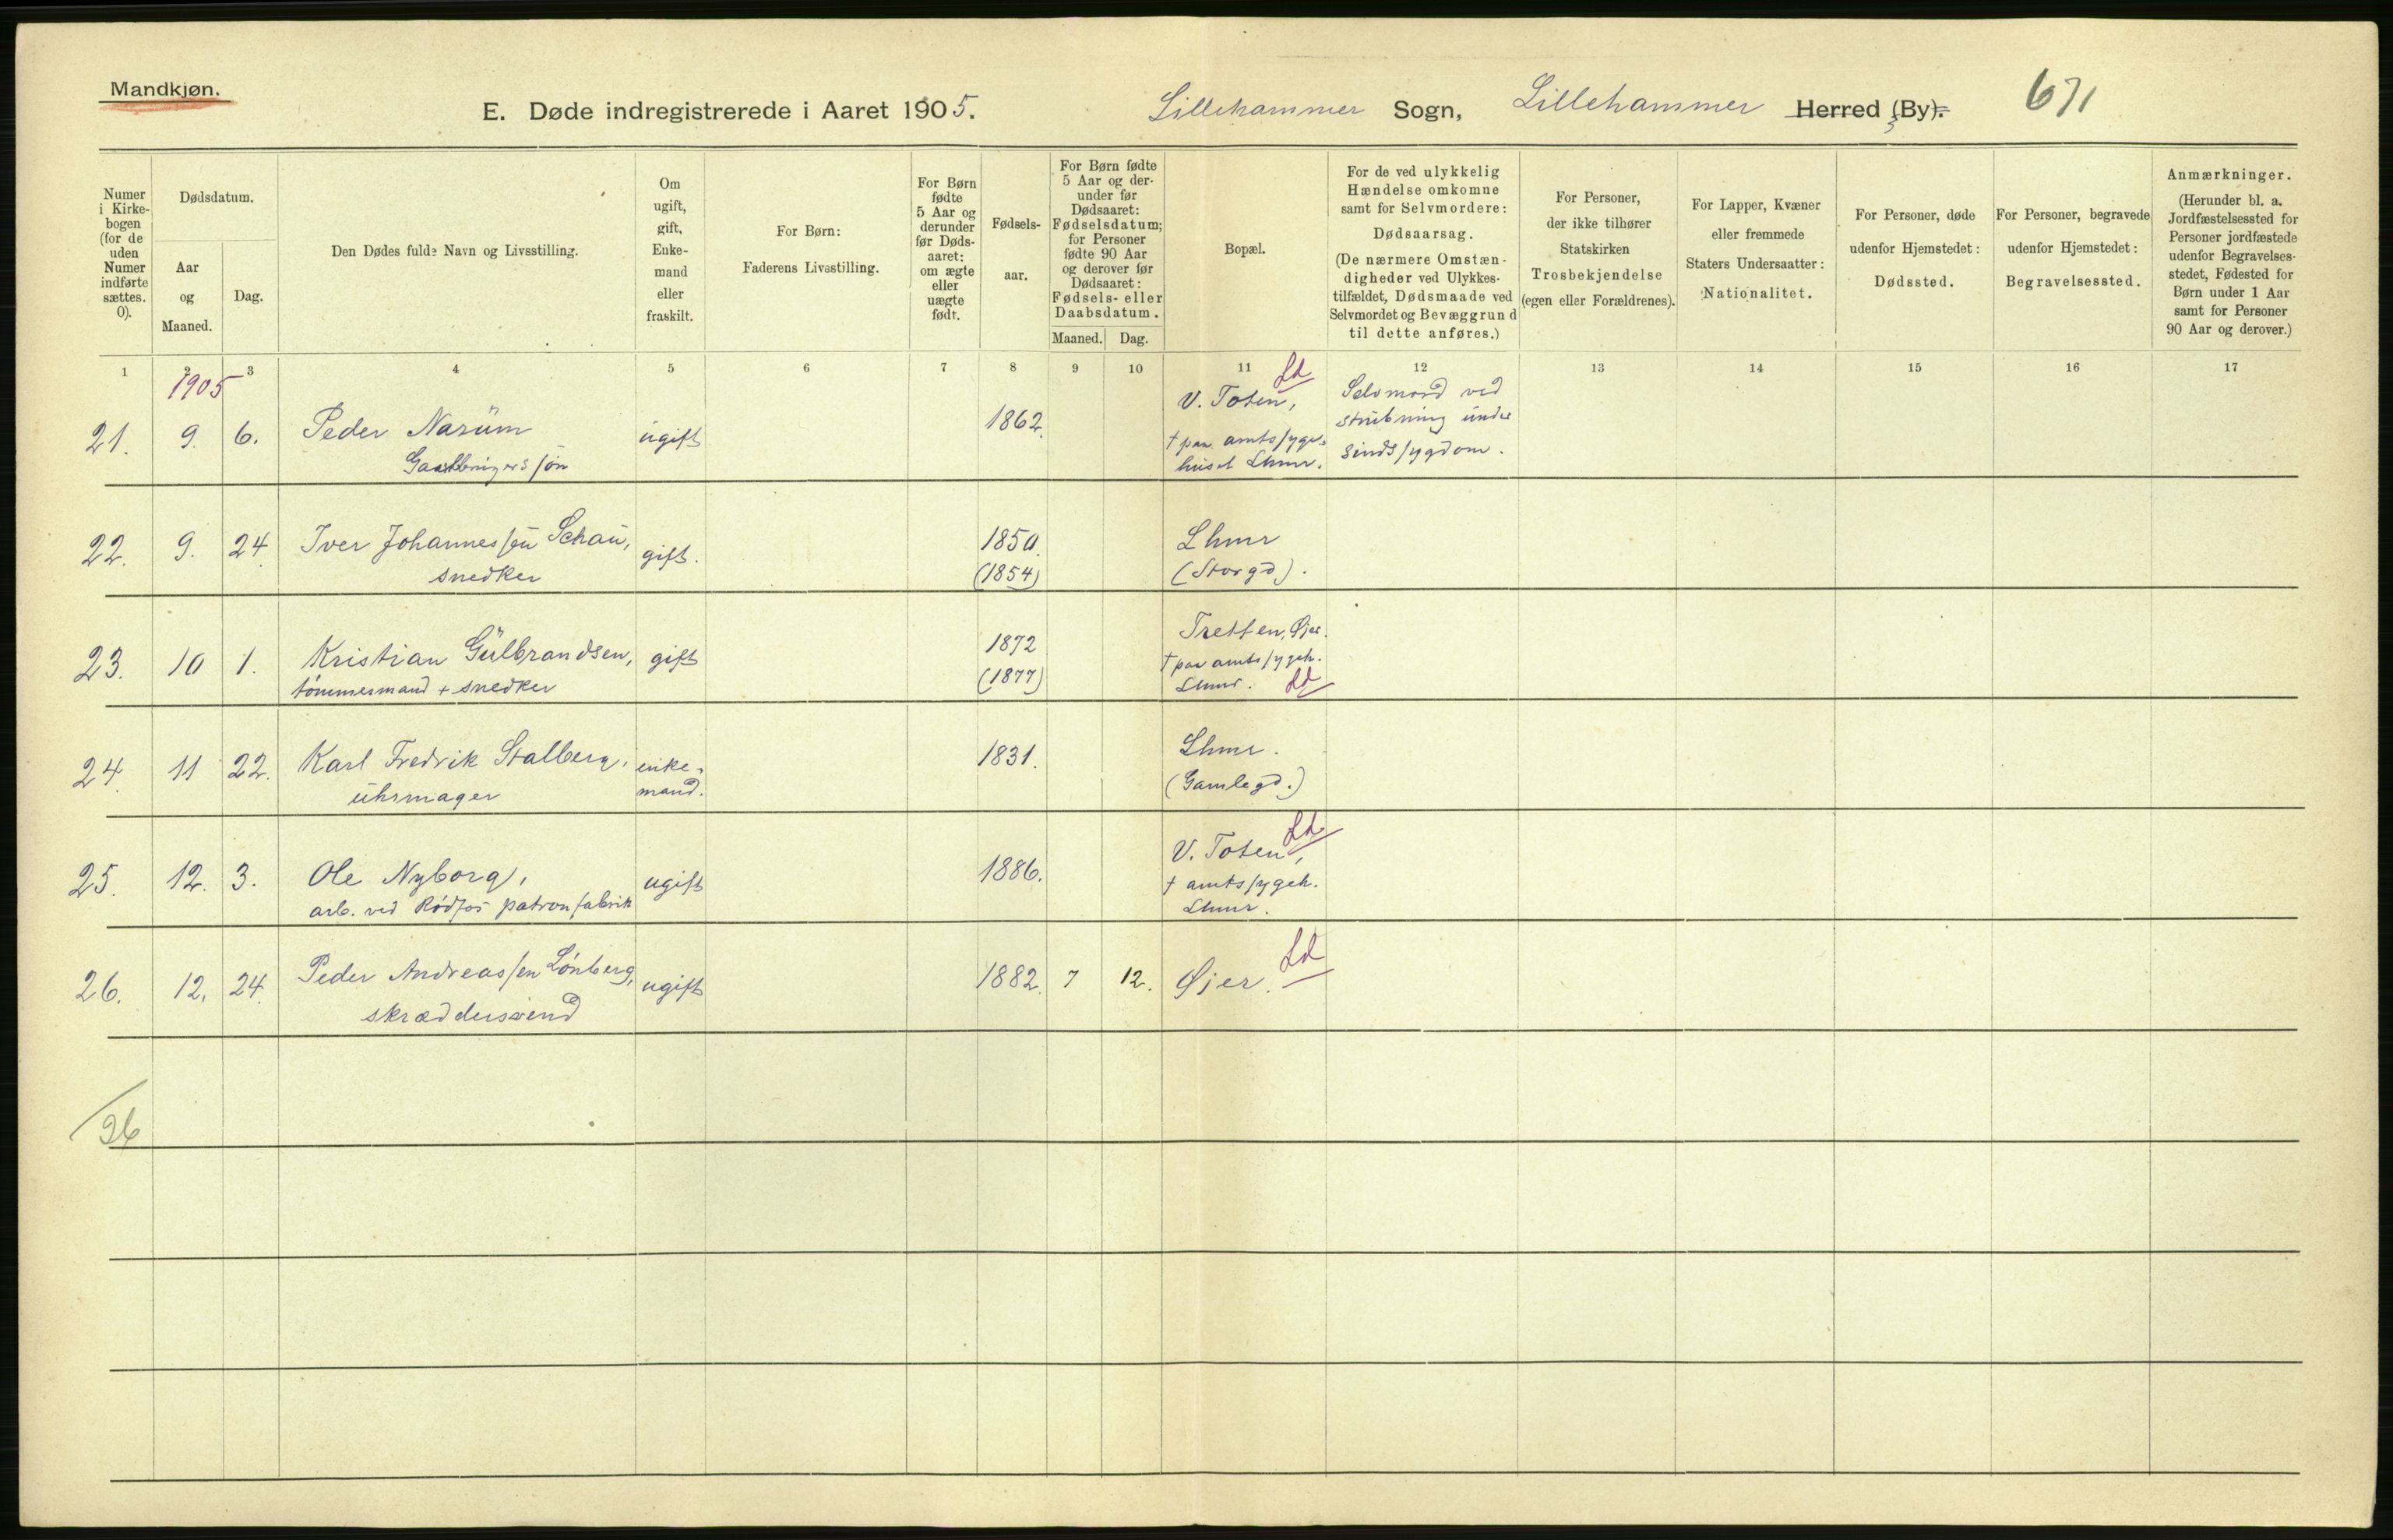 Mandkjøn.
E. Døde indregistrerede i Aaret 1905. Lillehammer Sogn, Lillehammer Herred (By). 671
Numer i Kirkebogen (for de uden Numer indførte sættes. 0).
Dødsdatum.
Aar og Maaned.
Dag.
Den Dødes fulde Navn og Livsstilling.
Om ugift, gift, Enkemand eller fraskilt.
For Børn: Faderens Livsstilling.
For Børn fødte 5 Aar og derunder før Dødsaaret: om ægte eller uægte født.
Fødselsaar.
For Børn fødte 5 Aar og derunder før Dødsaaret: Fødselsdatum; for Personer fødte 90 Aar og derover før Dødsaaret: Fødsels- eller Daabsdatum.
Maaned. Dag.
Bopæl.
For de ved ulykkelig Hændelse omkomne samt for Selvmordere: Dødsaarsag. (De nærmere Omstændigheder ved Ulykkestilfældet, Dødsmaade ved Selvmordet og Bevæggrund til dette anføres.)
For Personer, der ikke tilhører Statskirken Trosbekjendelse (egen eller Forældrenes).
For Lapper, Kvæner eller fremmede Staters Undersaatter: Nationalitet.
For Personer, døde udenfor Hjemstedet: Dødssted.
For Personer, begravede udenfor Hjemstedet: Begravelsessted.
Anmærkninger. (Herunder bl. a. Jordfæstelsessted for Personer jordfæstede udenfor Begravelsesstedet, Fødested for Børn under 1 Aar samt for Personer 90 Aar og derover.)
1 2 3 4 5 6 7 8 9 10 11 12 13 14 15 16 17
1905
21. 9. 6. Peder Narum ugift 1862. V. Toten, Selvmord ved
Gaardbrugers søn † paa amtssyge- strubning under
huset Lhmr. sindssygdom.
22. 9. 24. Iver Johannessen Schau, gift. 1850. Lhmr
snedker (1854) (Storgd).
23. 10 1. Kristian Gulbrandsen, gift 1872 Tretten, Øjer.
tømmermand + snedker (1877) † paa amtssygeh.
Lhmr. Ld
24. 11 22. Karl Fredrik Stalberg, enke- 1831. Lhmr.
uhrmager mand. (Gamlegd.)
25. 12. 3. Ole Nyborg, ugift 1886. V. Toten, Ld
arb. ved Rødfos patronfabrik † amtssygeh.
Lhmr.
26. 12. 24. Peder Andreassen Lønberg, ugift 1882. 7 12. Øjer. Ld
skræddersvend
26